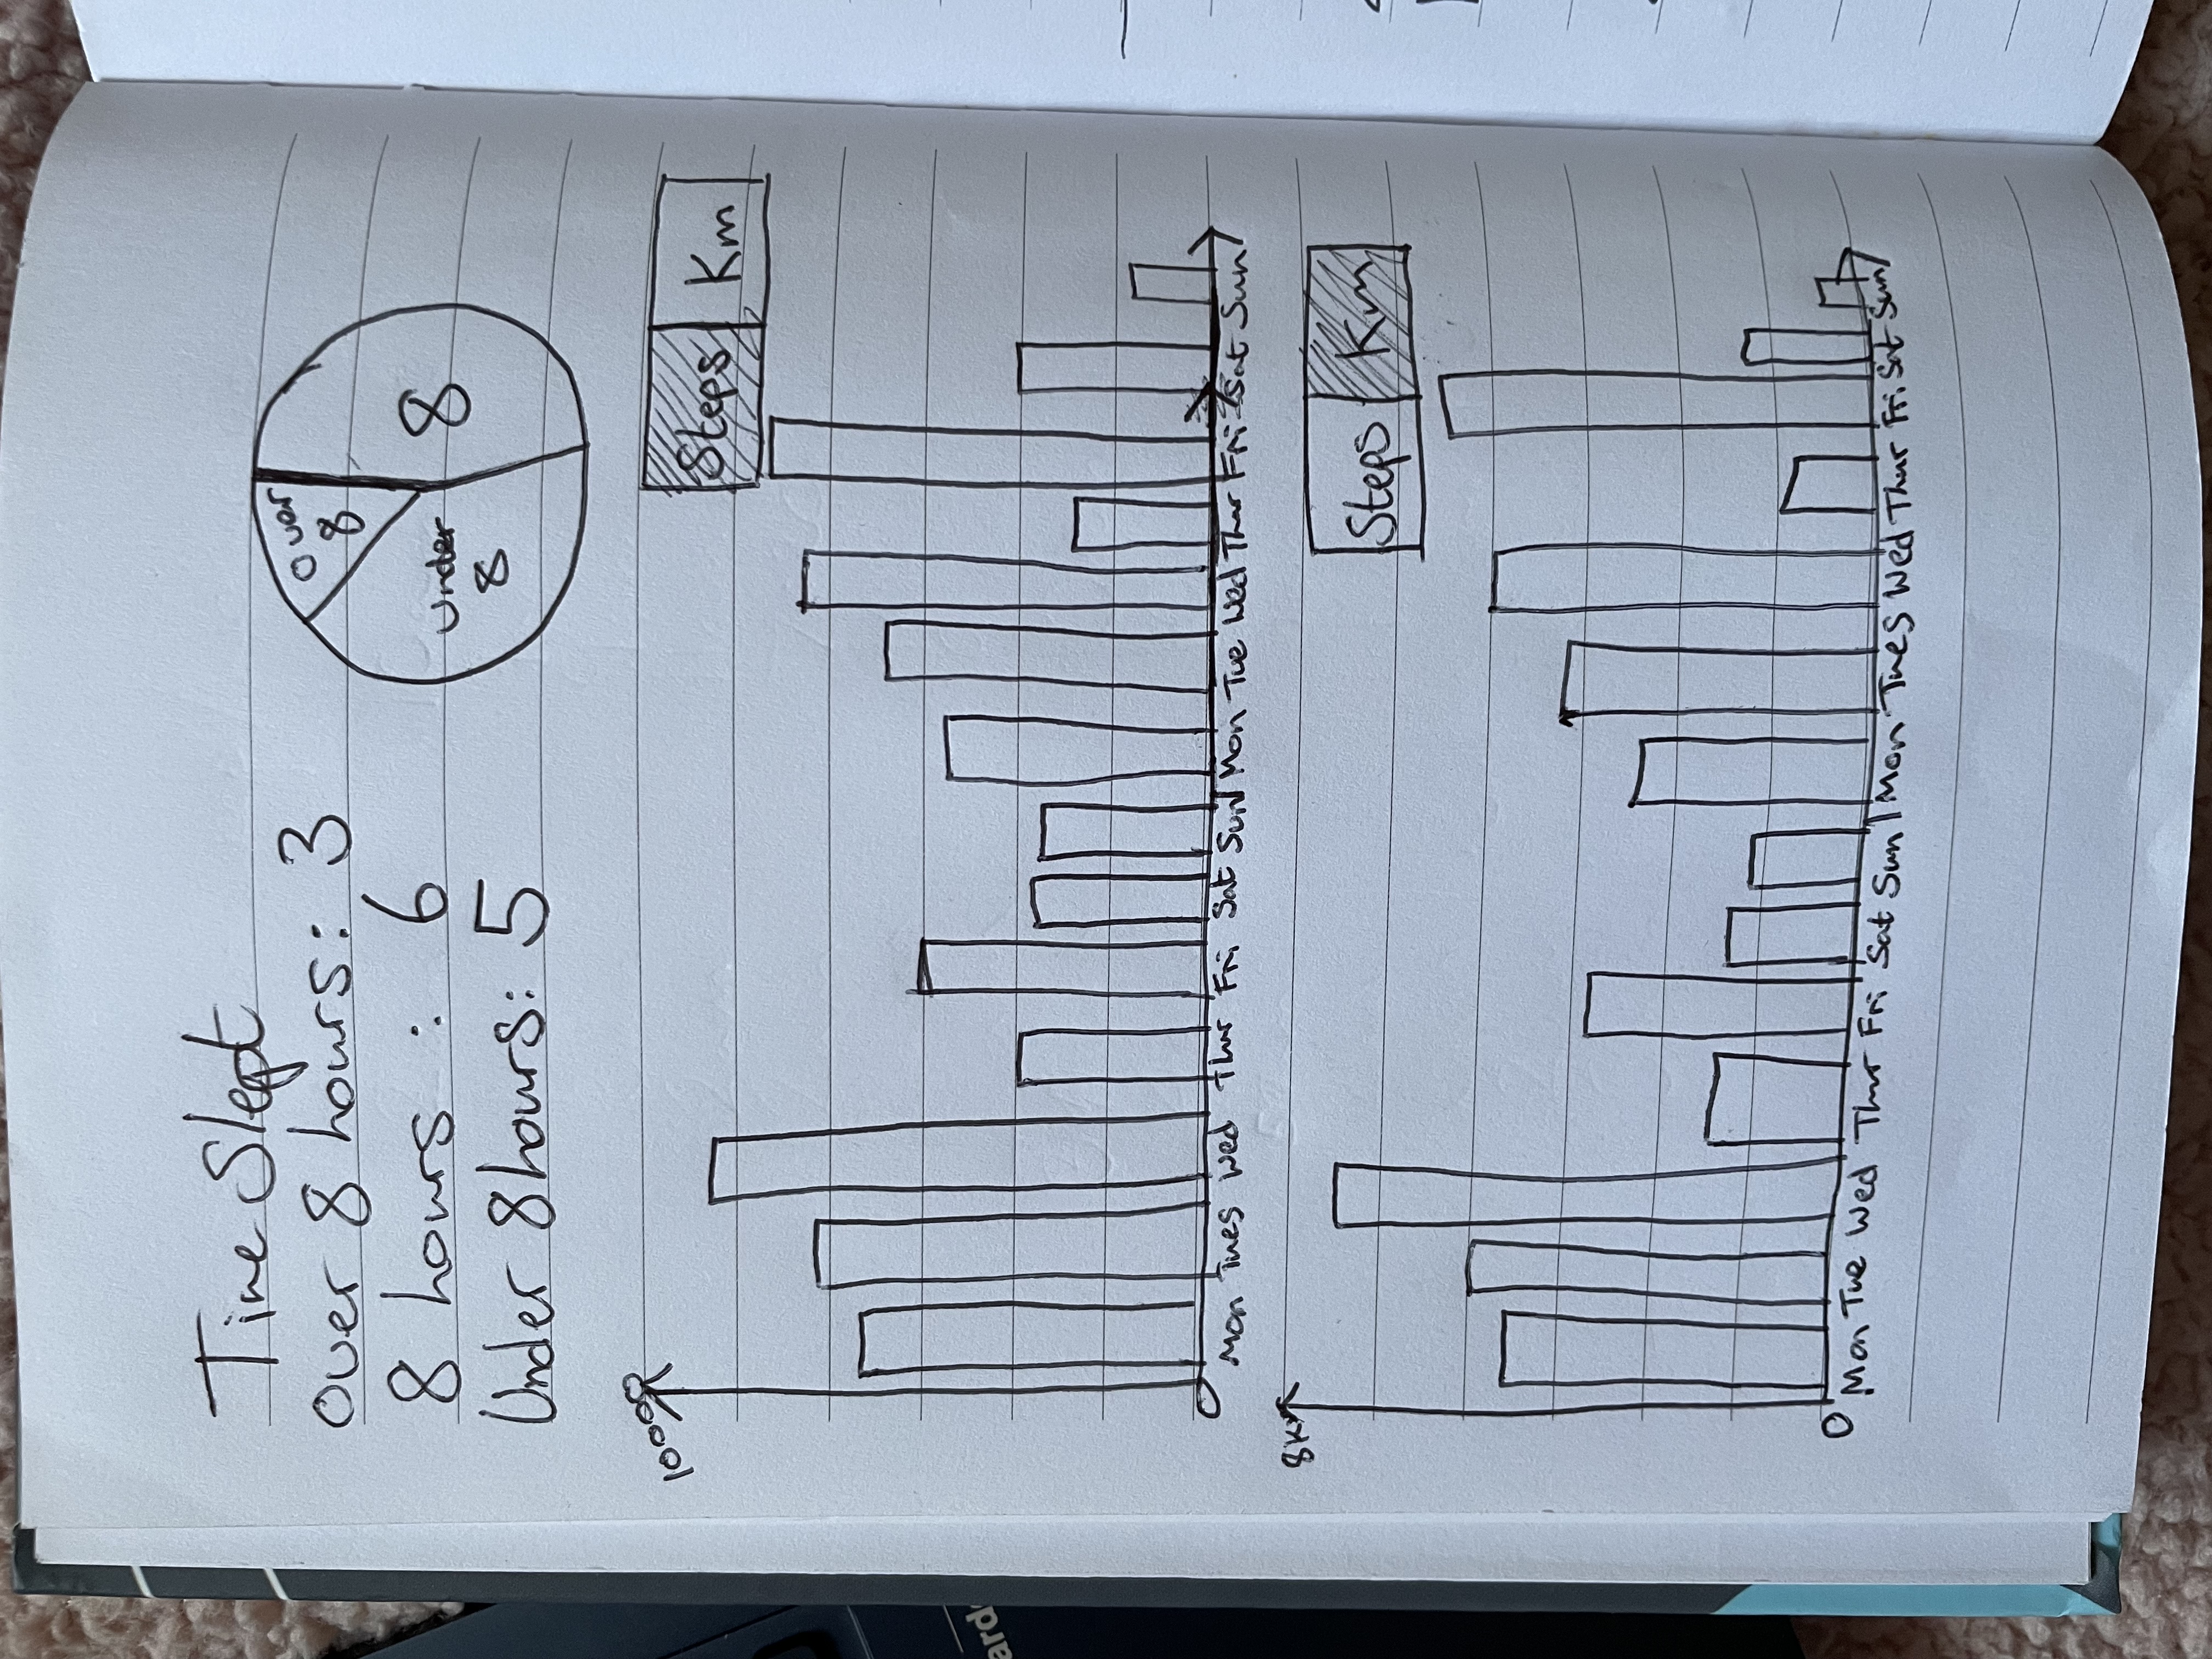 Time Slept
over 8 hours: 3
8 hours : 6
Under 8 hours: 5
over
8
8
under
8
Steps Km
10000
0
Mon Tues Wed Thur Fri Sat Sun Mon Tue Wed Thur Fri Sat Sun
Steps Km
8Km
0
Mon Tue Wed Thur Fri Sat Sun Mon Tues Wed Thur Fri Sat Sun